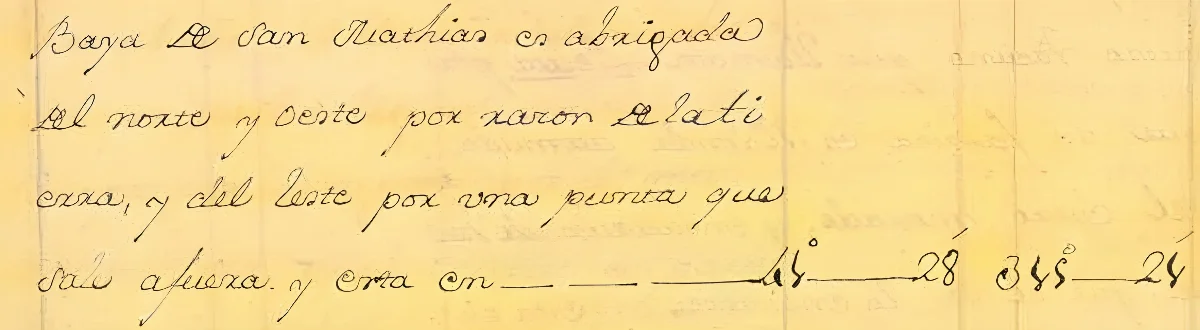 Baya de San Mathias es abrigada
del norte y Oeste por razon de la ti
erra, y del leste por vna punta que
sale afuera. y esta en — — — 44°—28' 345°—24